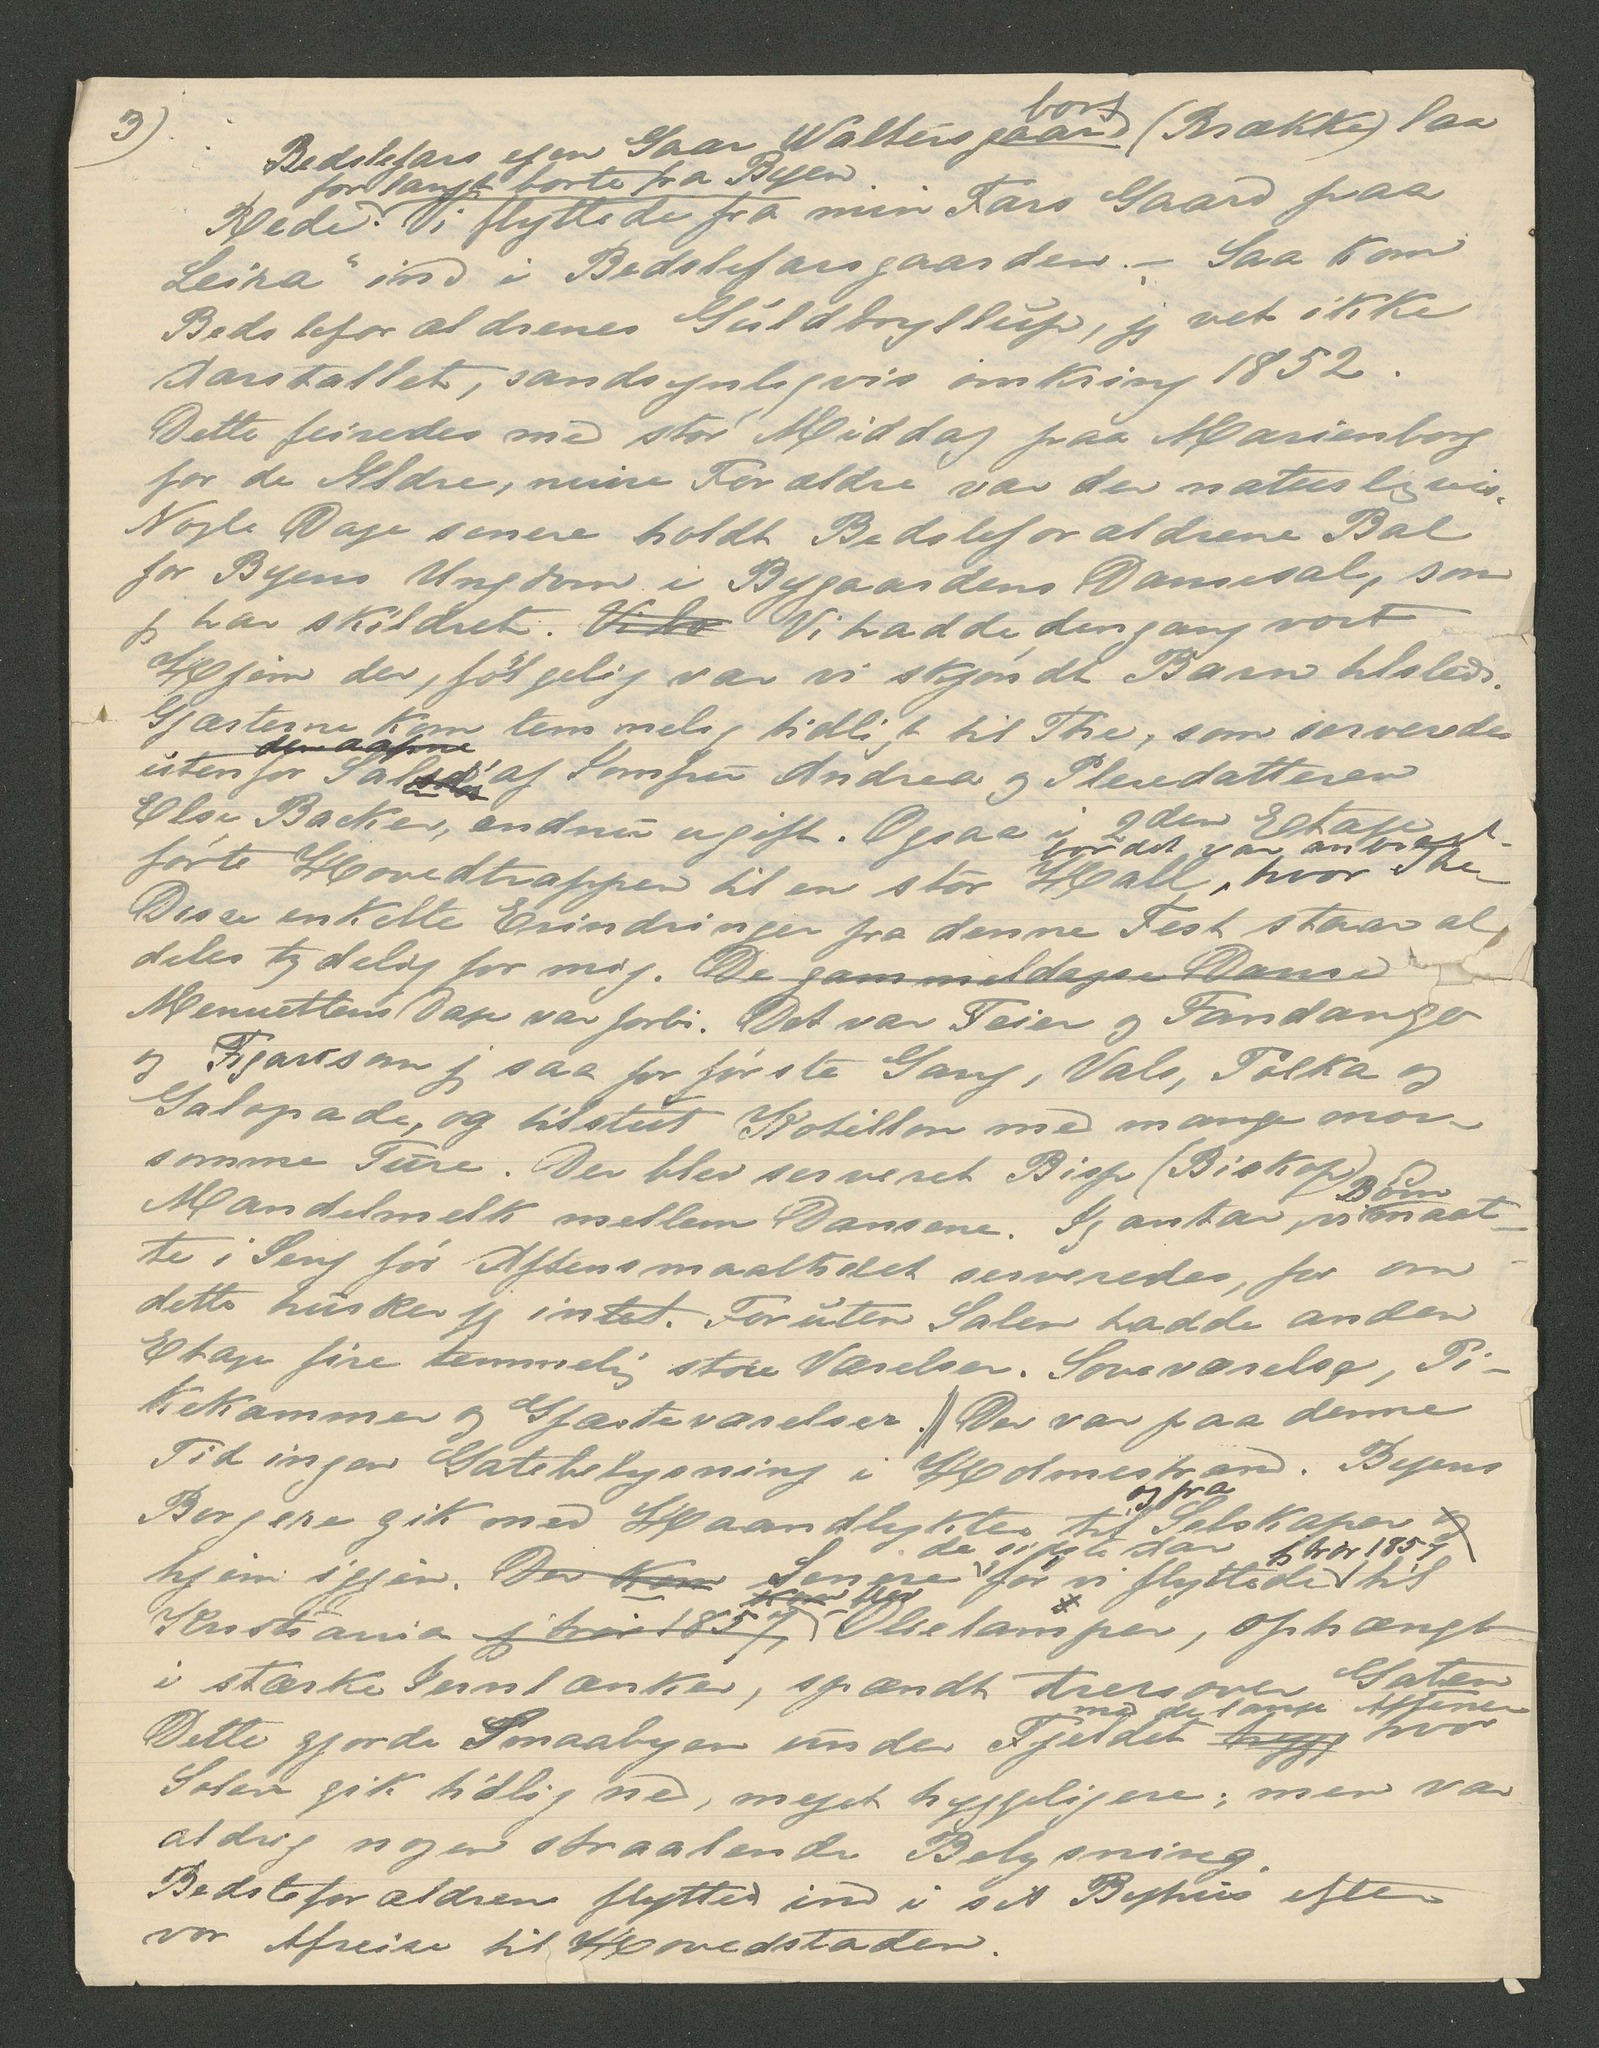 3)
bort
Bedstefars egen Gaar Waltersgaard (Brække) laa
for langt borte fra Byen
Rede. Vi flyttede fra min Fars Gaard paa
Leira" ind i Bedstefarsgaarden. – Saa kom
Bedsteforældrenes Guldbryllup, jg vet ikke
Aarstallet, sandsynligvis omkring 1852.
Dette feiredes med stor Middag paa Marienborg
for de Ældre, mine Forældre var der naturligvis.
Nogle Dage senere holdt Bedsteforældrene Bal
for Byens Ungdom i Bygaardens Dansesal, som
jg har skildret. Vi ha Vi hadde dengang vort
Hjem der, følgelig var vi skjøndt Barn tilstede.
Gjæsterne kom temmelig tidligt til The, som serveredes
den aapne
utenfor Salen af Jomfru Andrea og Pleiedatteren
Else Backer, endnu ugift. Ogsaa i 2den Etage
bordet var anbragt.
førte Hovedtrappen til en stor Hall, hvor The-
Disse enkelte Erindringer fra denne Fest staar al
deles tydelig for mig. De gammeldagse Danse
Menuettens Dage var forbi. Det var Feier og Fandango
og Figaro som jg saa for første Gang, Vals, Polka og
Galopade, og tilslut Kotillon med mange mor-
somme Ture. Der blev serveret Bisp (Biskop) og
Børn
Mandelmelk mellem Dansene. Jg antar, vi maat-
te i Seng før Aftensmaaltidet serveredes, for om
dette husker jg intet. Foruten Salen hadde anden
Etage fire temmelig store Værelser. Soveværelse, Pi-
kekammer og Gjæsteværelser. // Der var paa denne
Tid ingen Gatebelysning i Holmestrand. Byens
og fra
Borgere gik med Haandlykter til Selskaper og
de sidste Aar h hvor 1857
hjem igjen. Der kom Senere før vi flyttede til
kom der
Kristiania j hvor 1857, Olielamper, ophængt
i stærke Jernlænker, spændt tversover Gaten
med de lange Aftener
Dette gjorde Smaabyen under Fjeldet hygg hvor
Solen gik tidlig ned, meget hyggeligere; men var
aldrig nogen straalende Belysning.
Bedsteforældrene flytted ind i sit Byhus efter
vor Afreise til Hovedstaden.